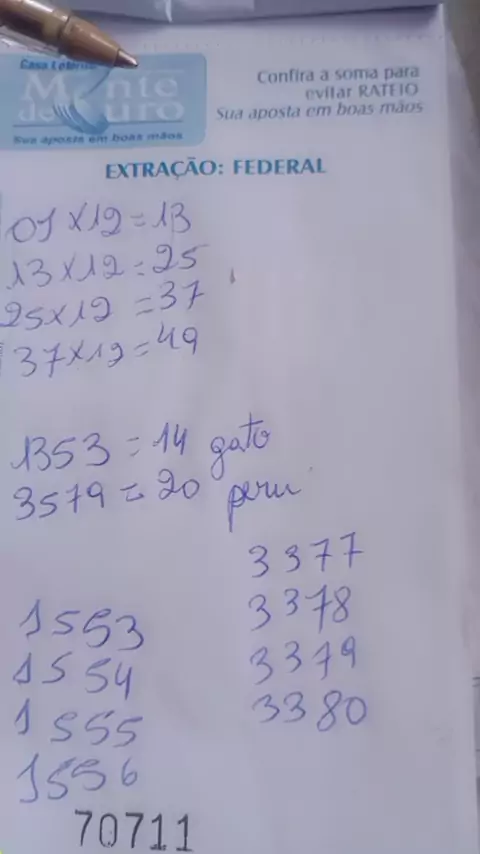 Casa Lotérica
Monte
de Ouro
Sua aposta em boas mãos
Confira a soma para
evitar RATEIO
Sua aposta em boas mãos
EXTRAÇÃO: FEDERAL
01 x 12 = 13
13 x 12 = 25
25 x 12 = 37
37 x 12 = 49
1353 = 14 gato
3579 = 20 peru
3377
3378
3379
3380
1553
1554
1555
1556
70711